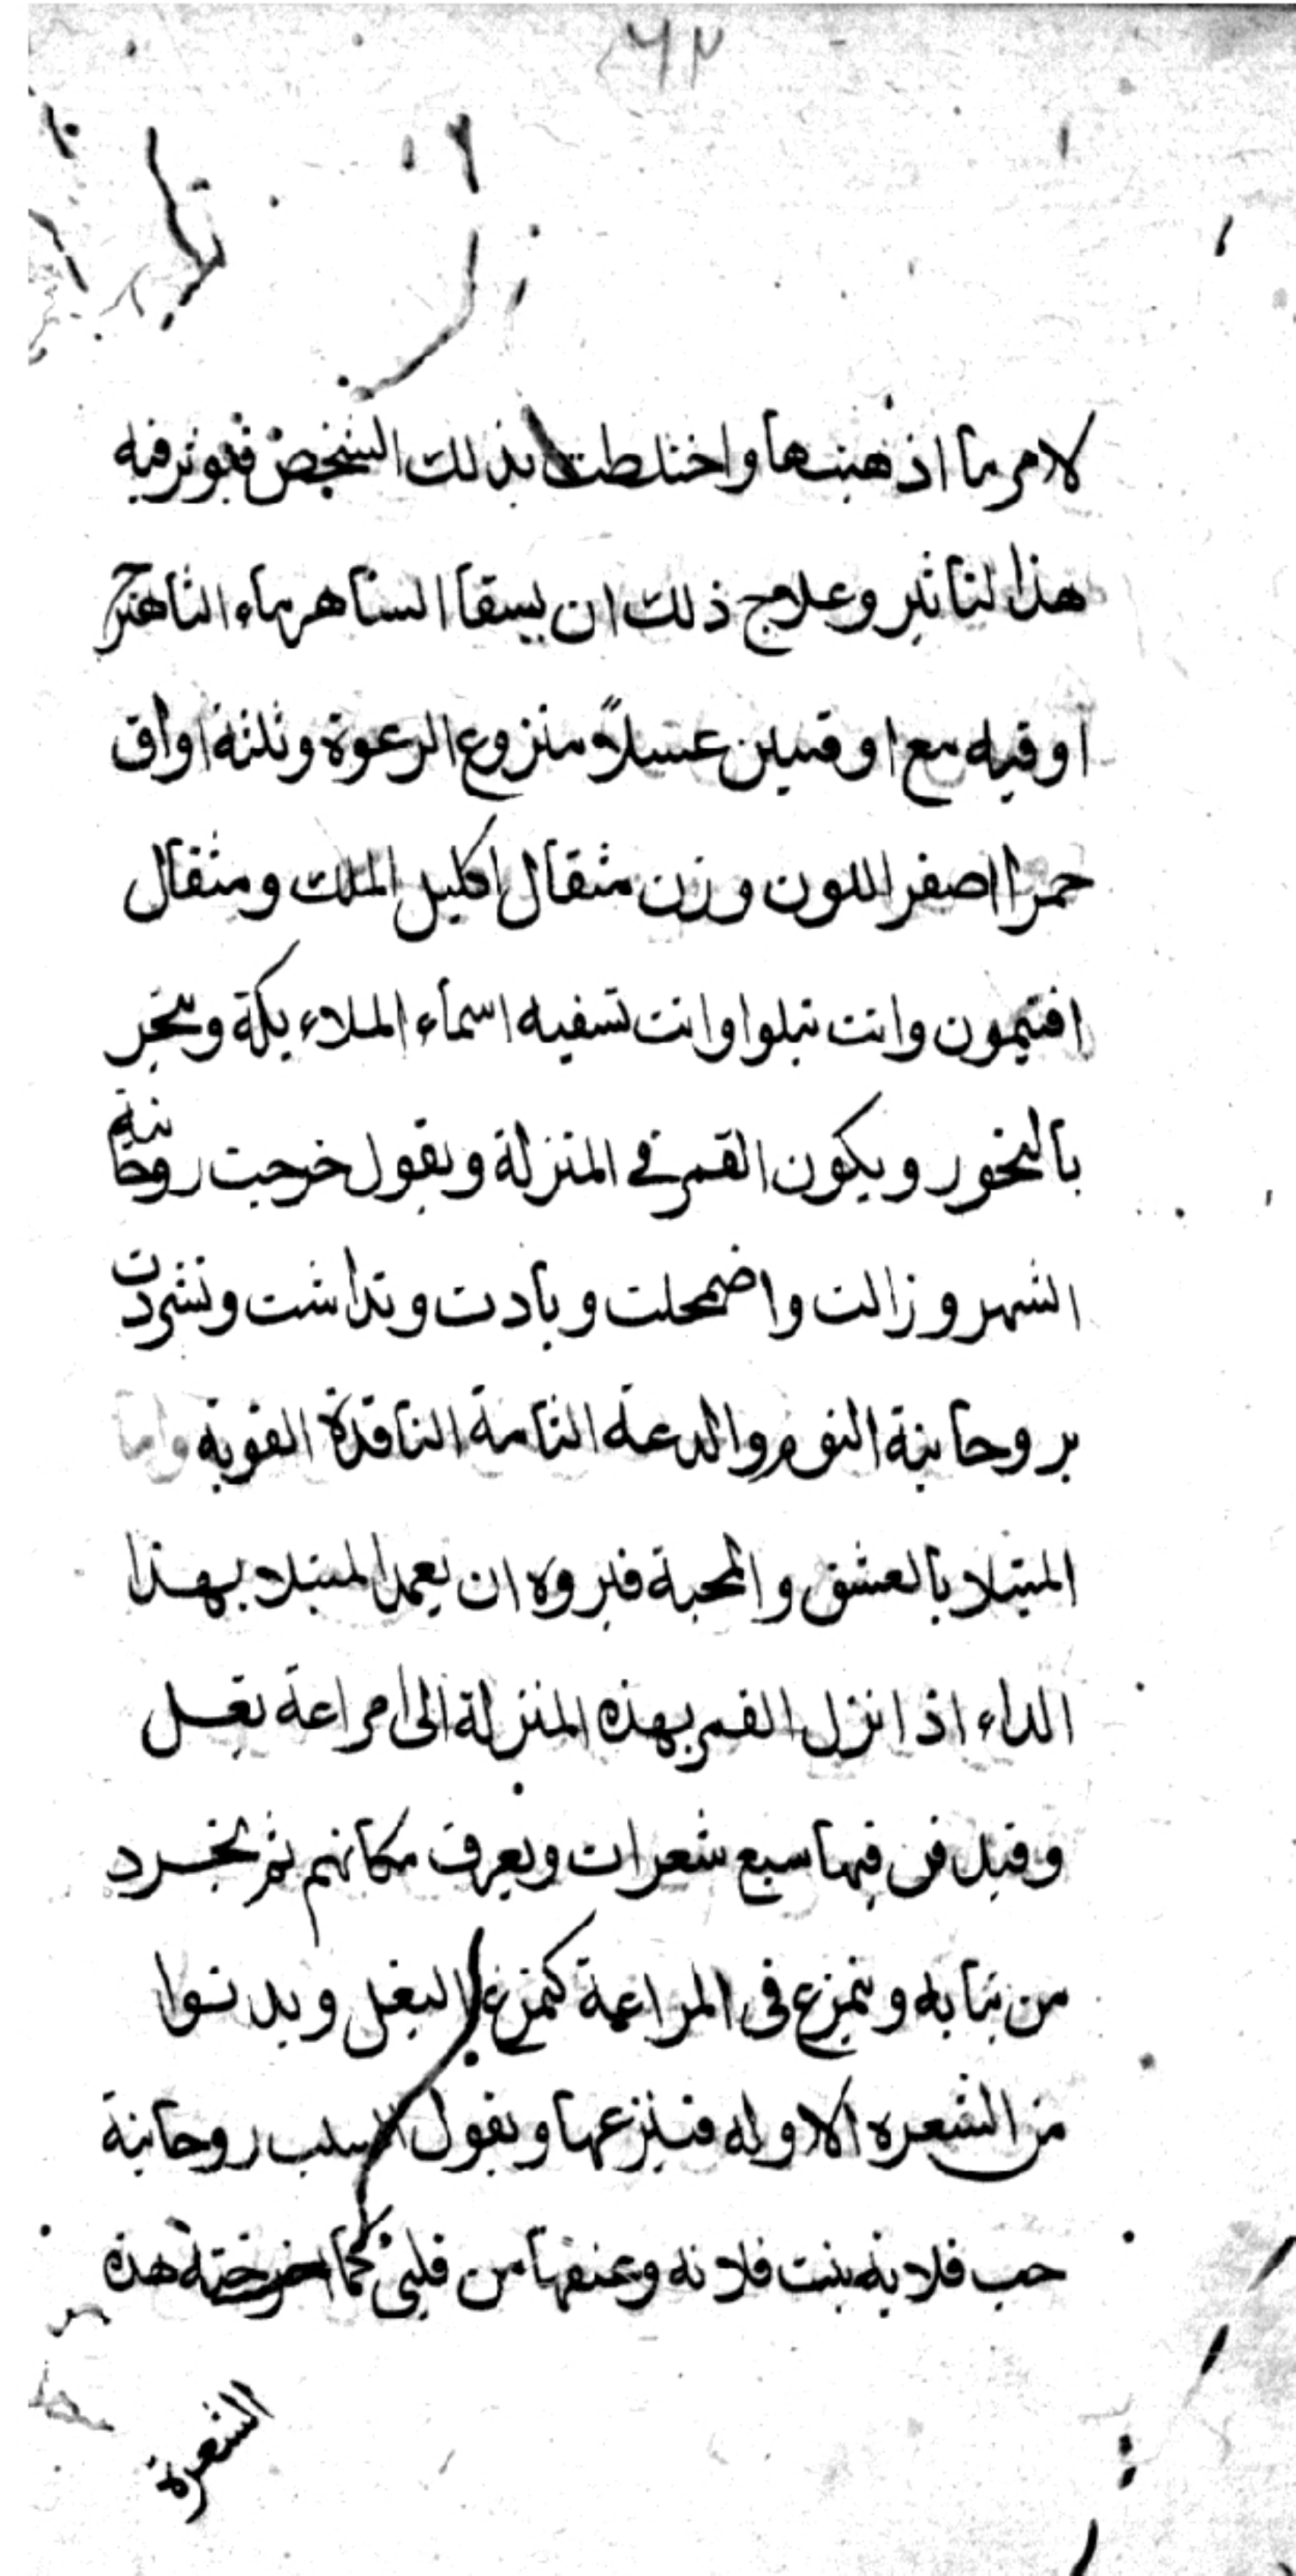 لامر ما اذهبنها واختلطت بذلك الشخص فيوثر فيه
هذا لتاثير وعلاج ذلك ان يسقا الساهر ماء الشاهترج
اوقيه مع اوقيين عسلاً منزوع الرعوة وثلثة اواق
خمرا اصفر اللون وزن مثقال اكليل الملك ومثقال
افتيمون وانت تبلوا وانت تسقيه اسماء الملاءيكة وتبخر
بالبخور ويكون القمر في المنزلة وبقول خرجت روحانية
السهر وزالت واضمحلت وبادت وتداشت وتشردت
بروحانية النوم والدعة التامة الناقدة القوية واما
المبتلا بالعشق والمحبة فبروه ان يعمد المبتلا بهذا
الداء اذا نزل القمر بهذه المنزلة الى امراعة بغل
وقبل فى فيها سبع شعرات ويعرف مكانهم ثم يتجرد
من ثيابه ويتمزغ فى المراعة كتمزغ البغل ويدنوا
من الشعره الاوله فينزعها وبقول سلب روحانية
حب فلانه بنت فلانه وعنفها من قلبى كما اخرخته هذه
الشعرة